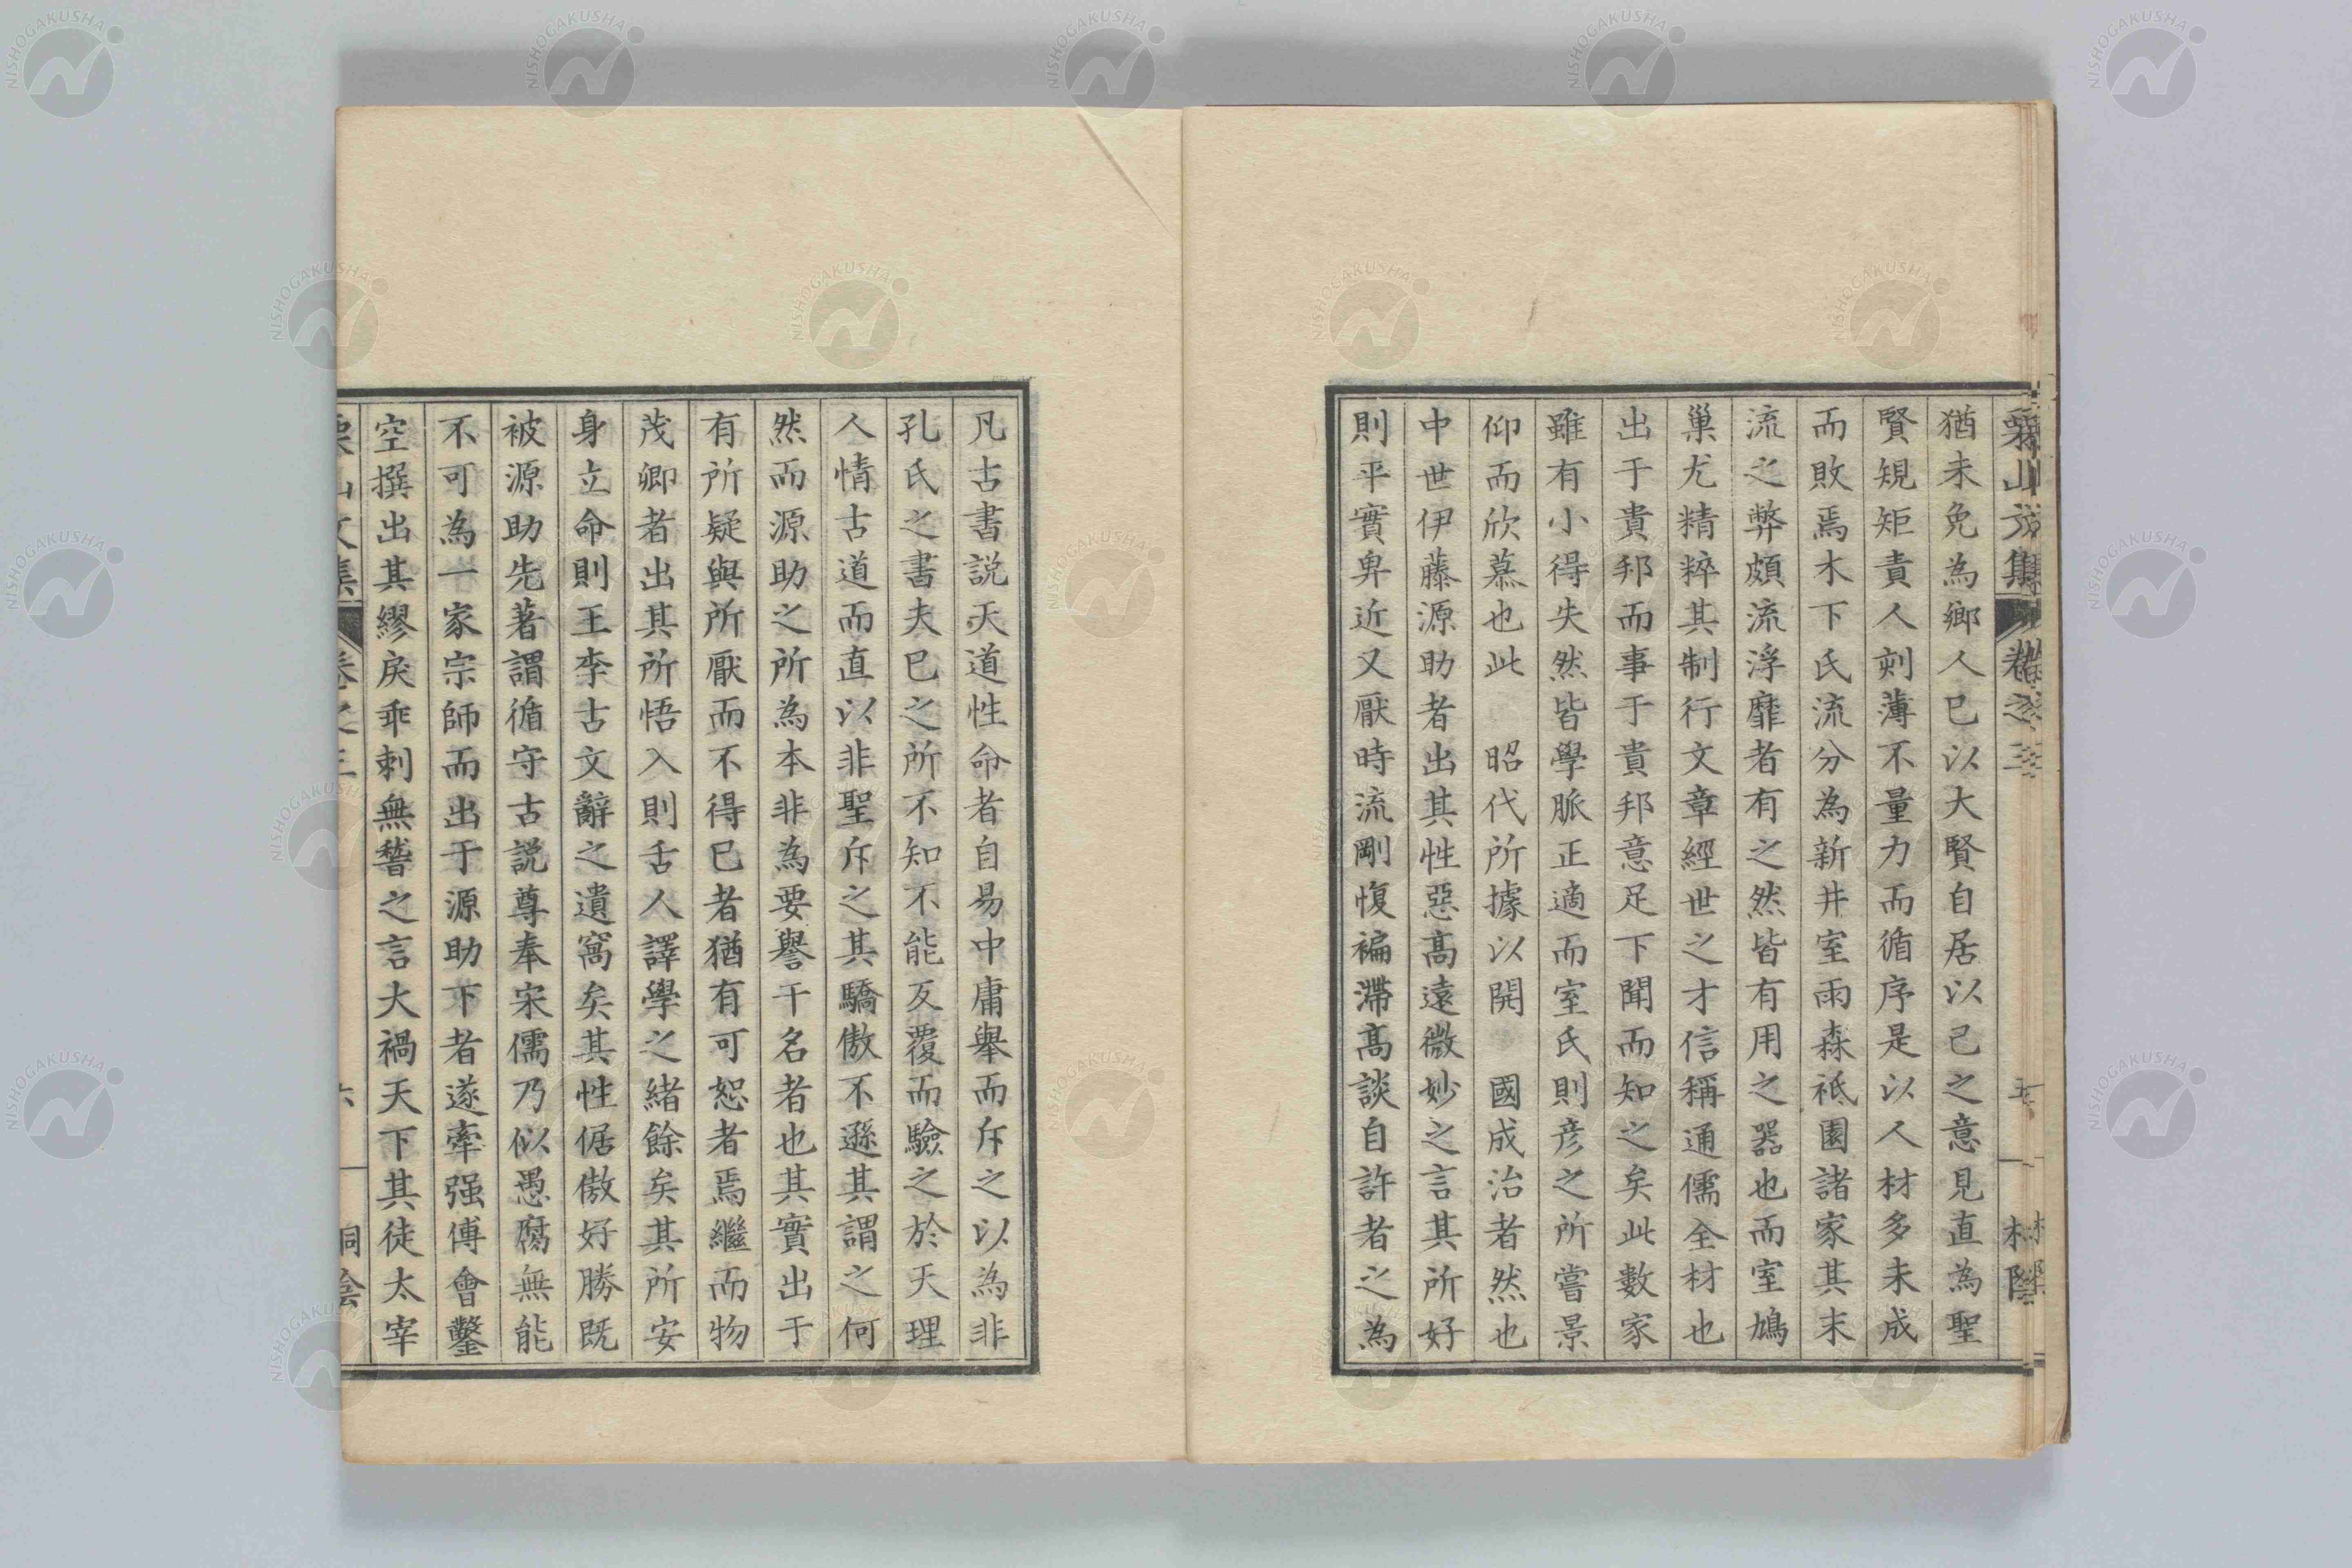 栗山文集 卷之三 五
猶未免為鄉人已以大賢自居以己之意見直為聖
賢規矩責人刻薄不量力而循序是以人材多未成
而敗焉木下氏流分為新井室雨森祇園諸家其末
流之弊頗流浮靡者有之然皆有用之器也而室鳩
巢尤精粹其制行文章經世之才信稱通儒全材也
出于貴邦而事于貴邦意足下聞而知之矣此數家
雖有小得失然皆學脈正適而室氏則彦之所嘗景
仰而欣慕也此 昭代所據以開 國成治者然也
中世伊藤源助者出其性惡高遠微妙之言其所好
則平實卑近又厭時流剛愎褊滯高談自許者之為
凡古書説天道性命者自易中庸舉而斥之以為非
孔氏之書夫巳之所不知不能反覆而驗之於天理
人情古道而直以非聖斥之其驕傲不遜其謂之何
然而源助之所為本非為要譽干名者也其實出于
有所疑與所厭而不得已者猶有可恕者焉繼而物
茂卿者出其所悟入則舌人譯學之緒餘矣其所安
身立命則王李古文辭之遺窩矣其性倨傲好勝既
被源助先著謂循守古説尊奉宋儒乃似愚腐無能
不可為一家宗師而出于源助下者遂牽强傅會鑿
空撰出其繆戾乖刺無瞽之言大禍天下其徒太宰
栗山文集 卷之三 六 桐陰
NISHOGAKUSHA